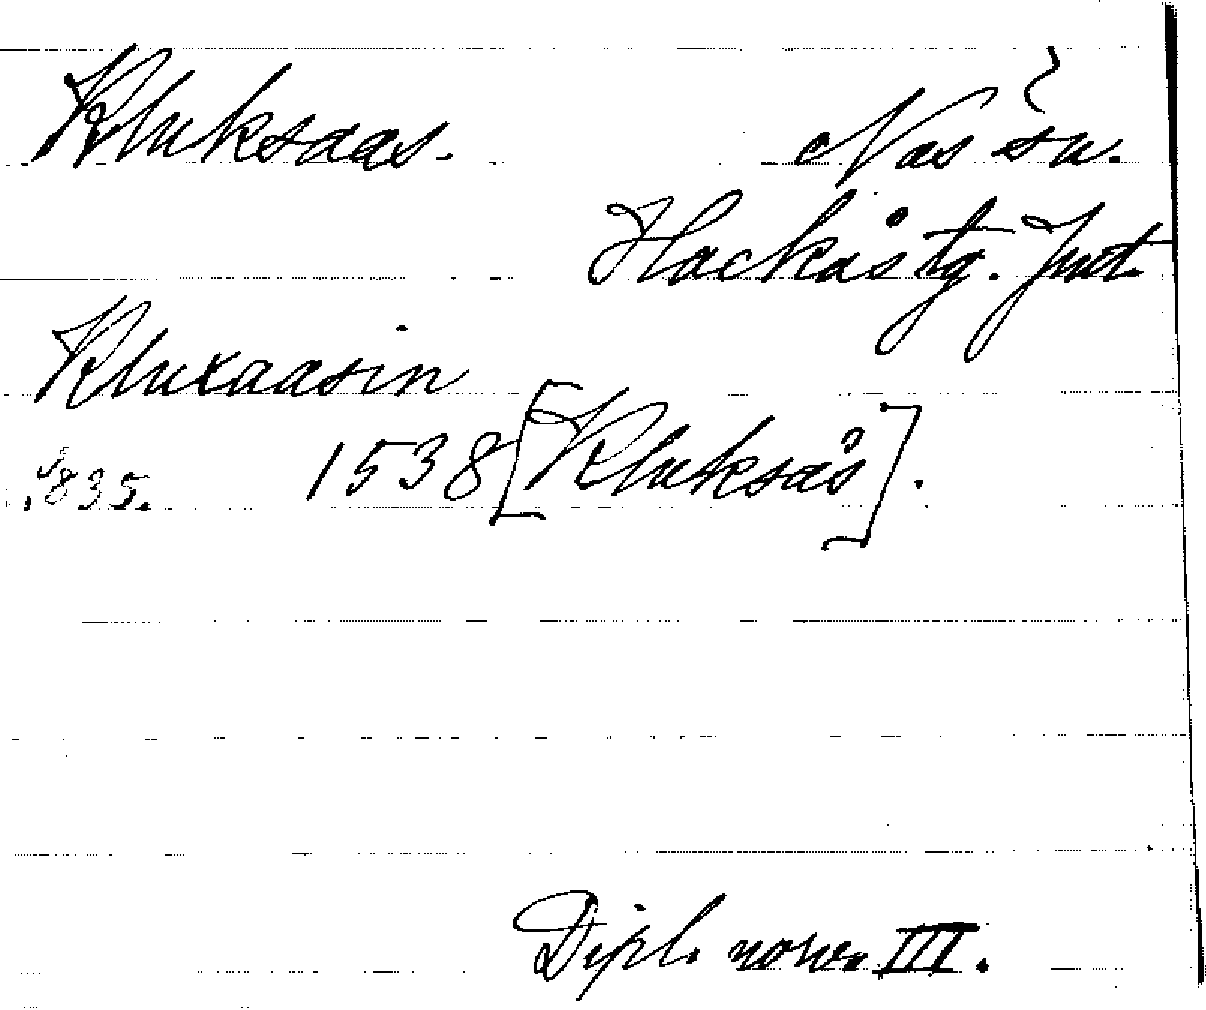 Kluksaas. Näs sn.
Hackås tg. Jmt.
Kluxaasin
s. 835. 1538 [Kluksås].
Dipl. norv. III.